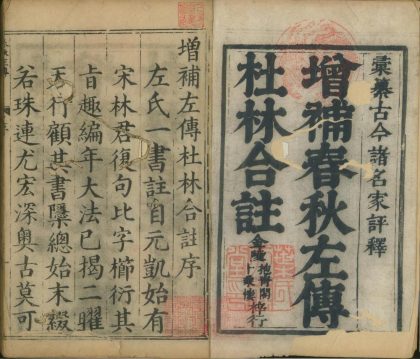 彙纂古今諸名家評釋
增補春秋左傳
杜林合註
金陵
梓行
增補左傳杜林合註序
左氏一書註自元凱始有
宋林君復句比字櫛衍其
旨趣編年大法已揭二曜
天行顧其書隱總始末綴
若珠連尤宏深奧古莫可